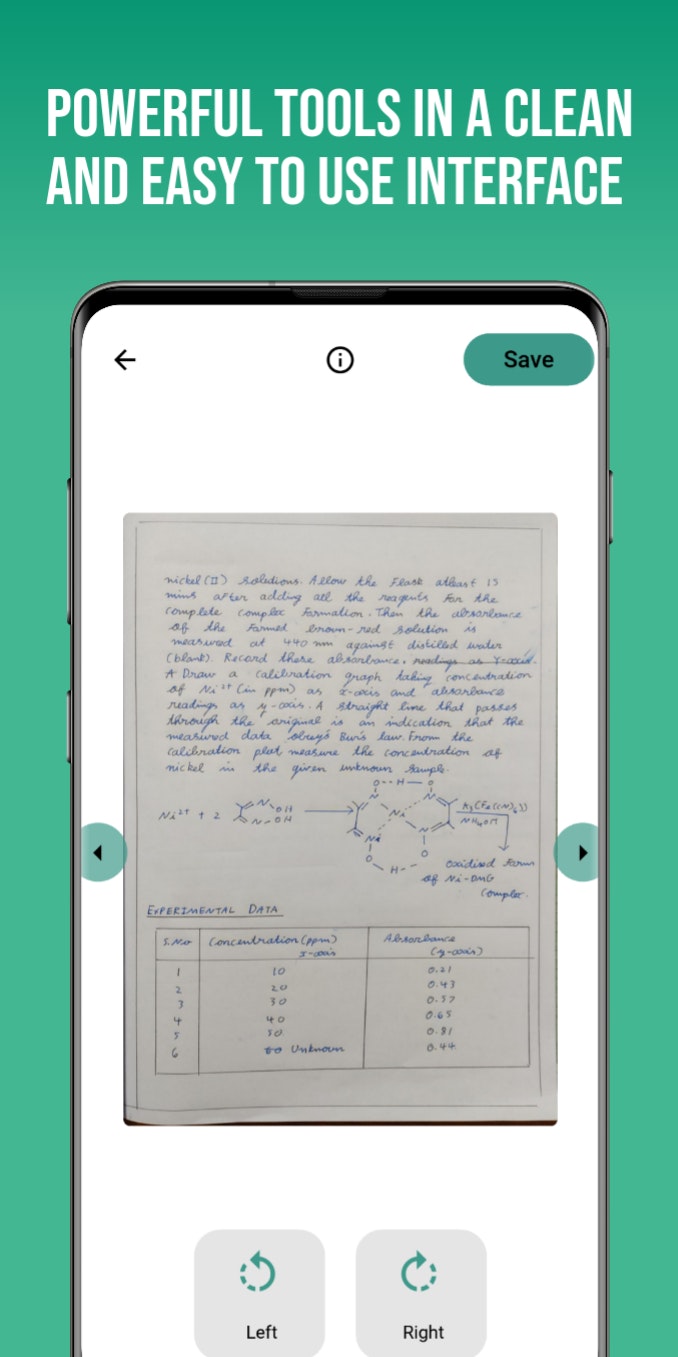 POWERFUL TOOLS IN A CLEAN
AND EASY TO USE INTERFACE
Save
nickel (II) solutions. Allow the Flask atleast 15
mins after adding all the reagents for the
complete complex formation. Then the absorbance
of the formed brown-red solution is
measured at 440 nm against distilled water
(blank). Record these absorbance. readings as Y-axis.
Draw a calibration graph taking concentration
of Ni²⁺ (in ppm) as x-axis and absorbance
readings as y-axis. A straight line that passes
through the original is an indication that the
measured data obeys law. From the
calibration plot measure the concentration of
nickel in the given unknown sample.
O--H—O
Ni²⁺ + 2
N OH
N-OH
N
N
Ni
N
N
NH₄OH
O
O
H
oxidised form
of Ni-DMG
complex.
EXPERIMENTAL DATA
S.No Concentration (ppm) Absorbance
x-axis (y-axis)
1 10 0.21
2 20 0.43
3 30 0.57
4 40 0.65
5 50 0.81
6 Unknown 0.44
Left Right